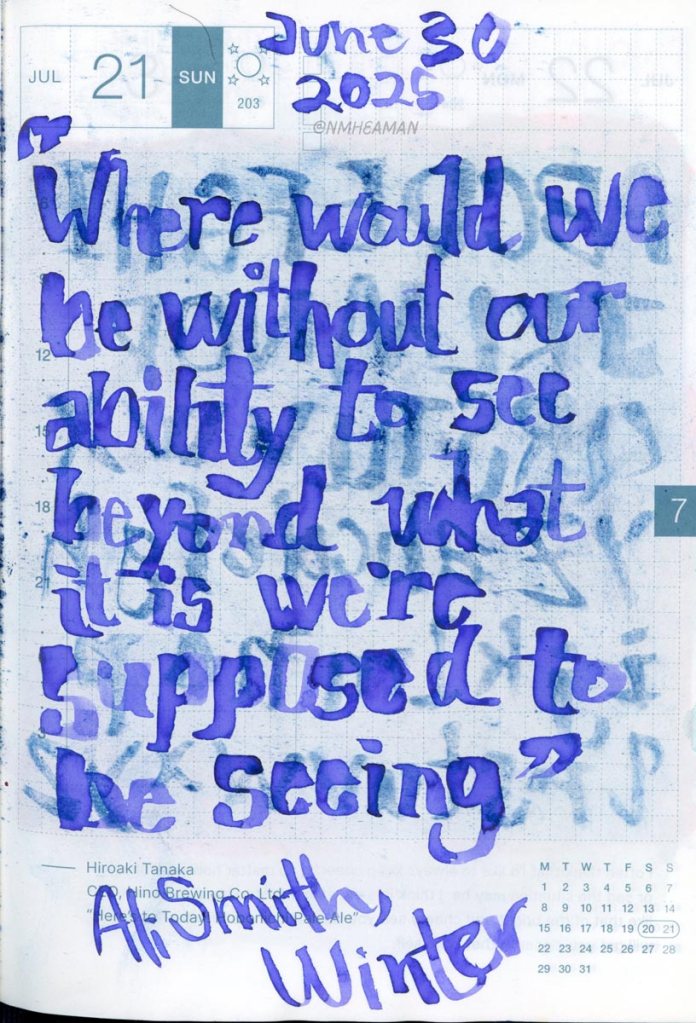 June 30
2025
JUL 21 SUN
203
@NMHEAMAN
"Where would we
be without our
ability to see
beyond what
it is we're
supposed to
be seeing"
12
18
21
7
Hiroaki Tanaka
CEO, Hino Brewing Co. Ltd.
"Here's to Today! Hobonichi Pale Ale"
Ali Smith,
Winter
M T W T F S S
1 2 3 4 5 6 7
8 9 10 11 12 13 14
15 16 17 18 19 20 21
22 23 24 25 26 27 28
29 30 31